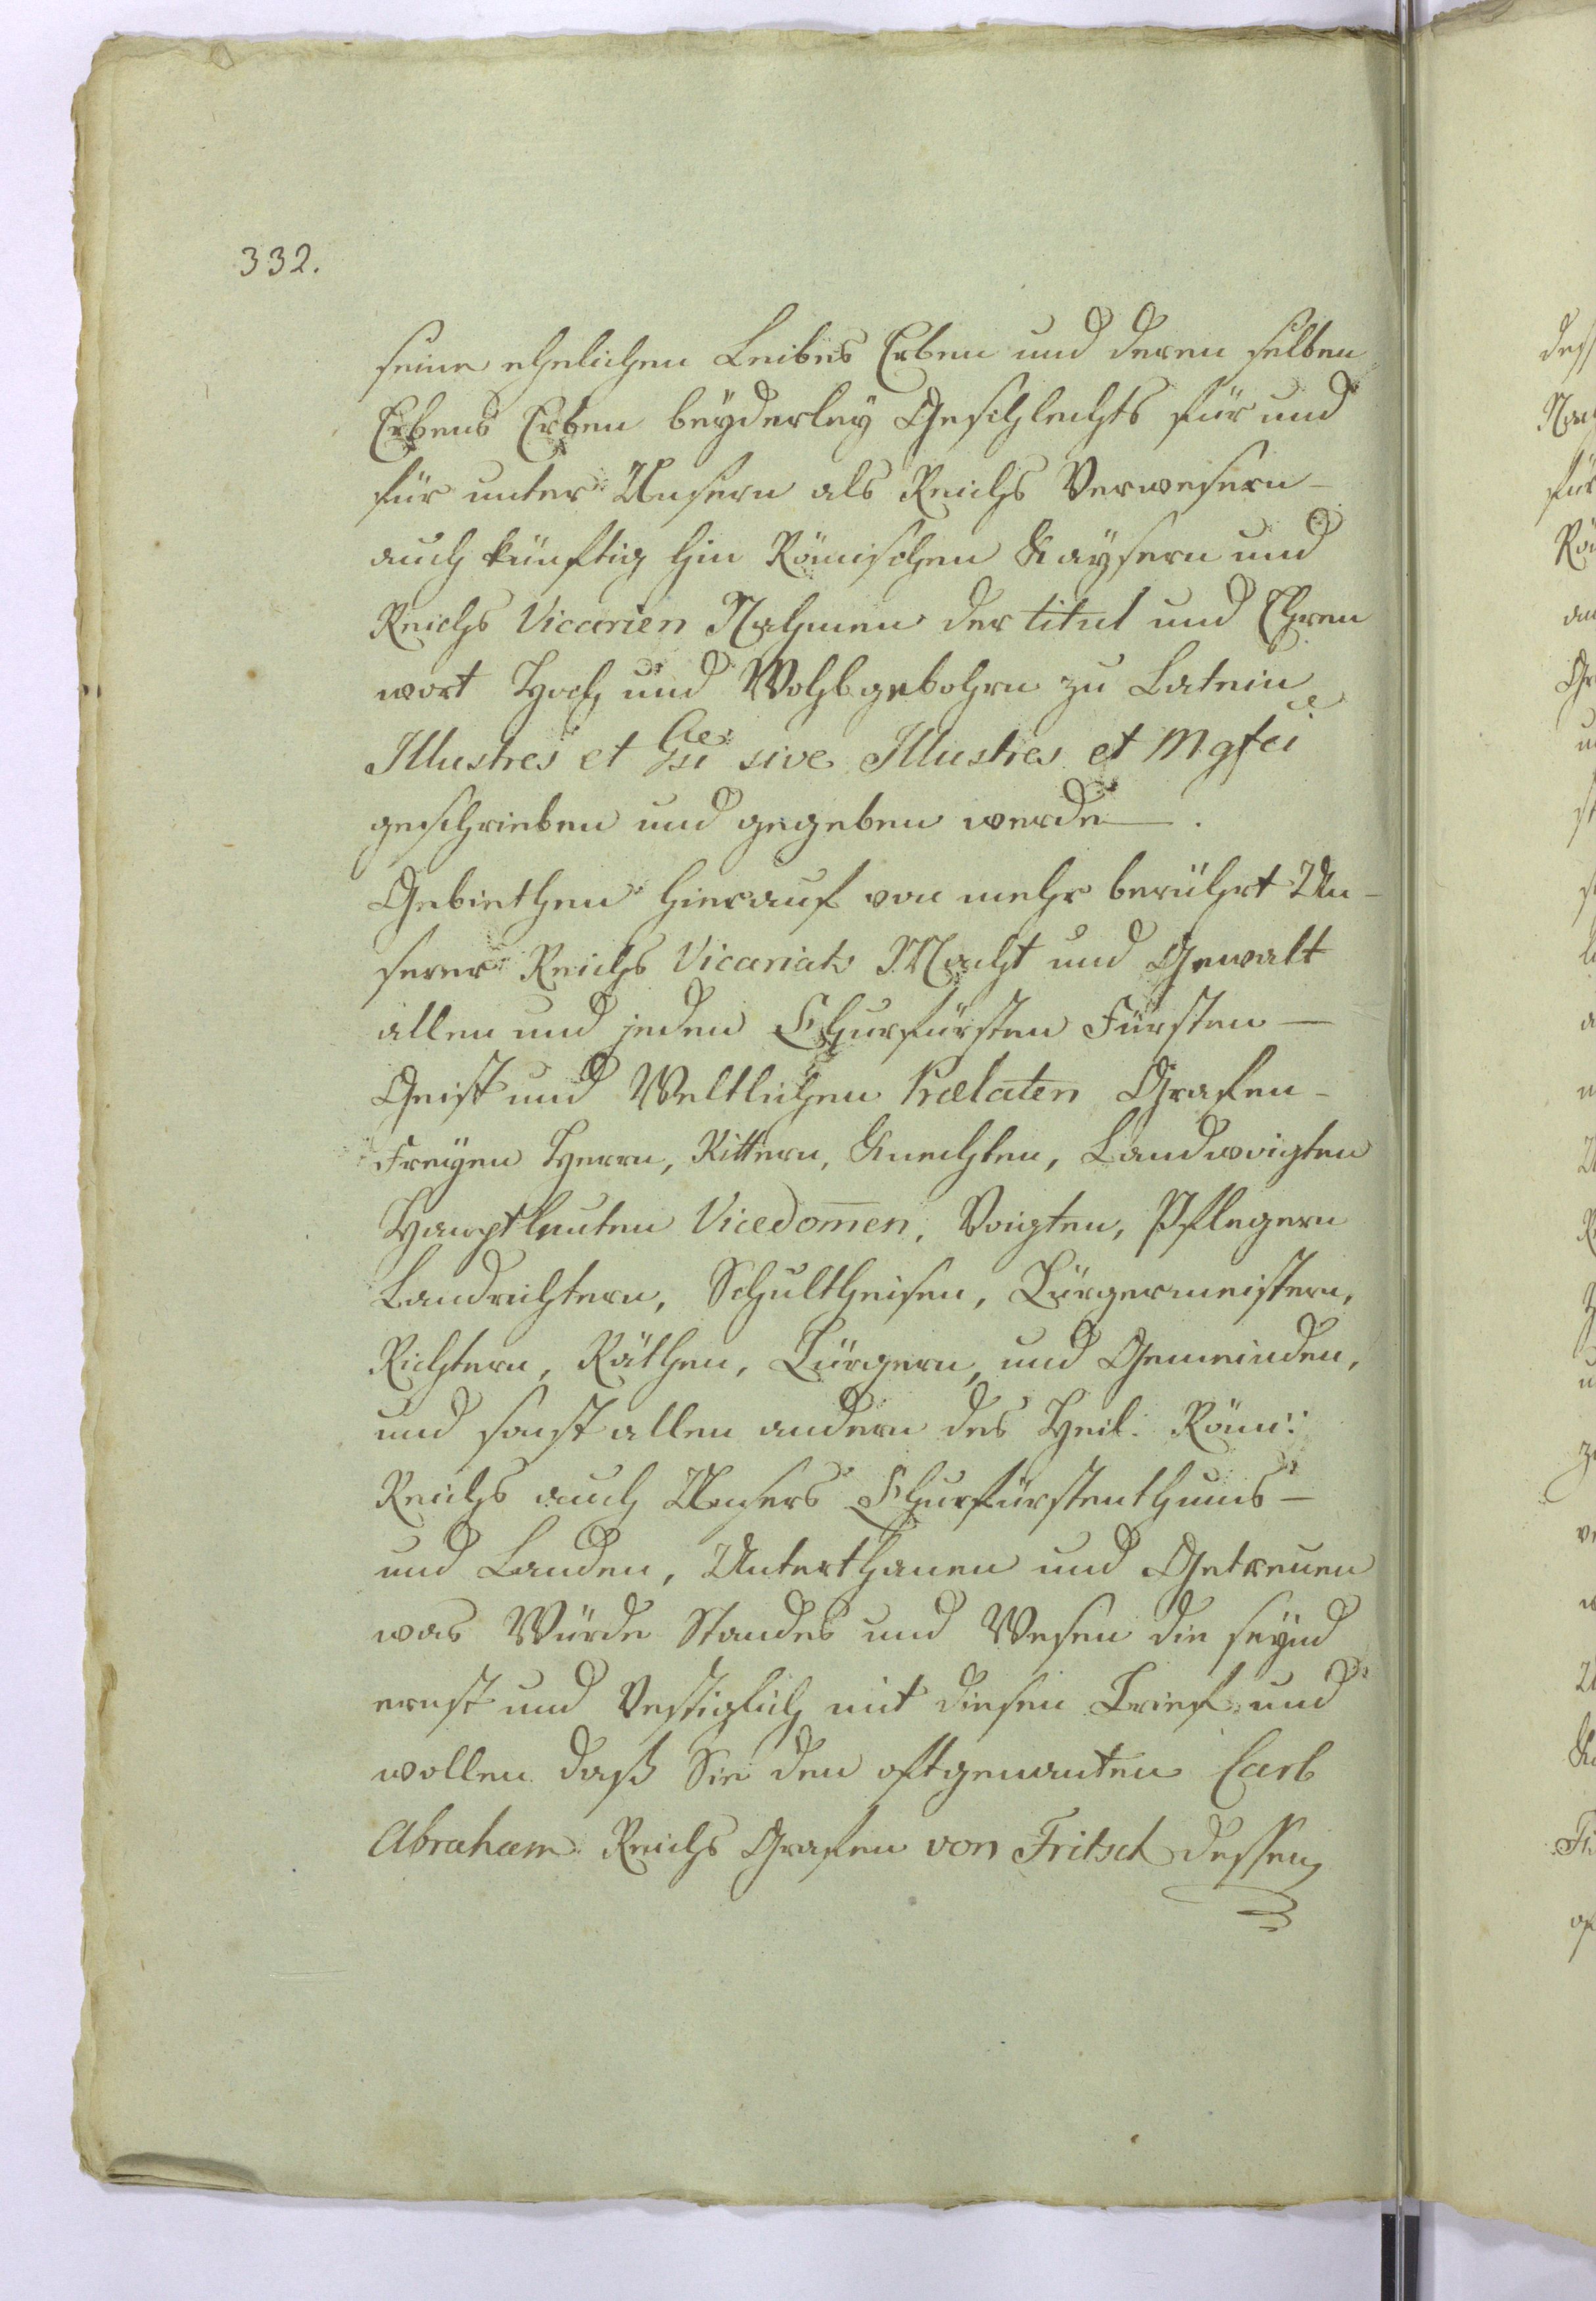 332.
seine ehelichen Leibes Erben und deren selben
Erbens Erben beyderley Geschlechts für und
für unter Unsern als Reichs Verwesern -
auch künftig hin Römischen Kaysern und
Reichs Vicarien Nahmen der titul und Ehren
wort Hoch und Wohlgebohrn zu Latein
Illustres et sive Illustres et Mgfci
geschrieben und gegeben werde.
Gebiethen hierauf von mehr berührt Un-
serer Reichs Vicariats Macht und Gewalt
allen und jeden Churfürsten Fürsten -
Geist und Weltlichen Prælaten Grafen -
Freyen Herrn, Rittern, Knechten, Landvoigten
Hauptleuten Vicedom̅en, Voigten, Pflegern
Landrichtern, Schultheisen, Bürgermeistern,
Richtern, Räthen, Bürgern, und Gemeinden,
und sonst allen andern des Heil. Röm:
Reichs auch Unsers Churfürstenthums -
und Landen, Unterthanen und Getreuen
was Würde Standes und Wesen die seynd
ernst und Vestiglich mit diesen Brief und
wollen daß Sie den oftgenanten Carl
Abraham Reichs Grafen von Fritsch dessen